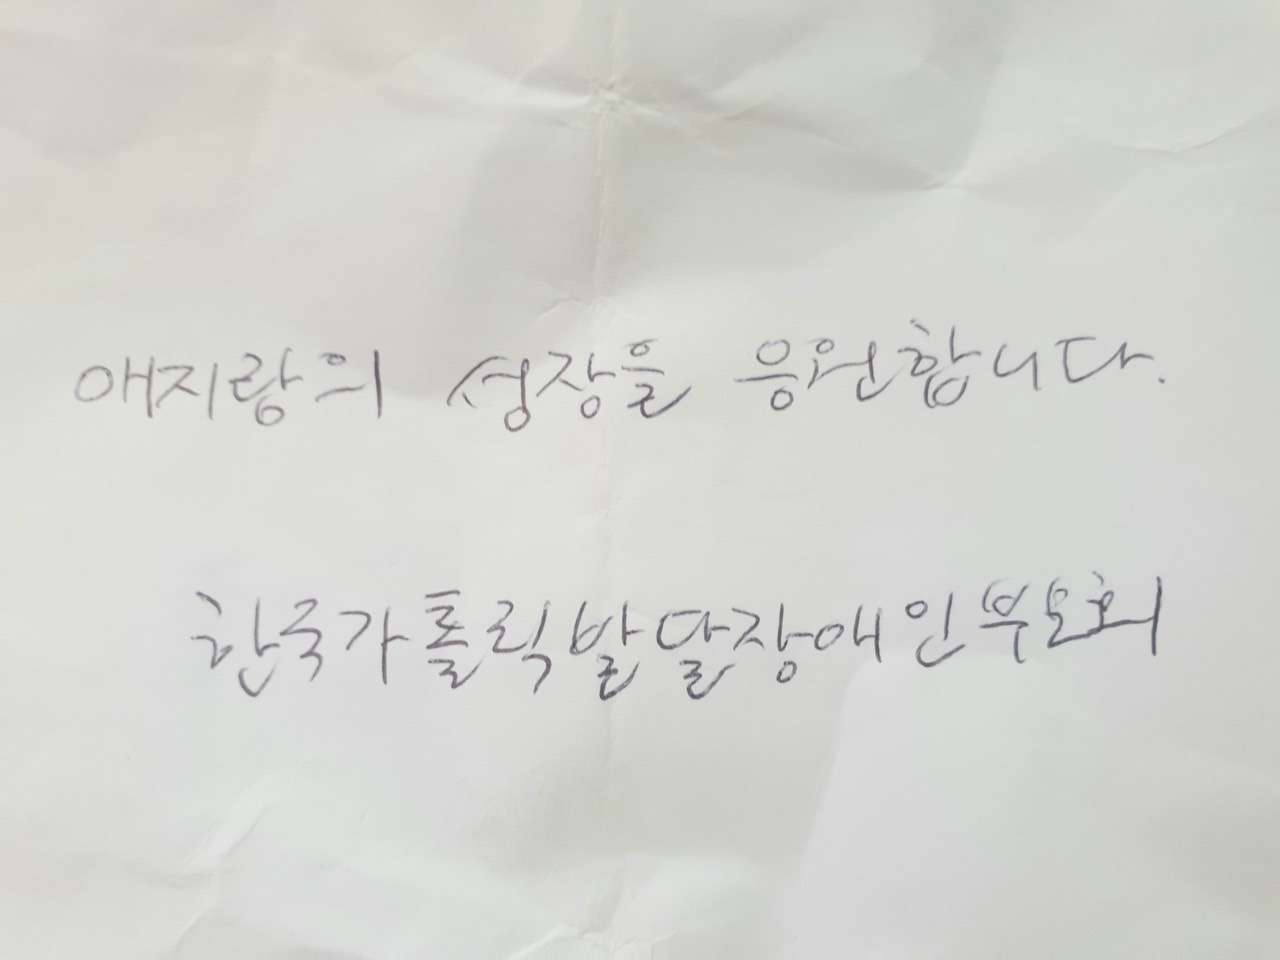 애지랑의 성장을 응원합니다.
한국가톨릭발달장애인부모회